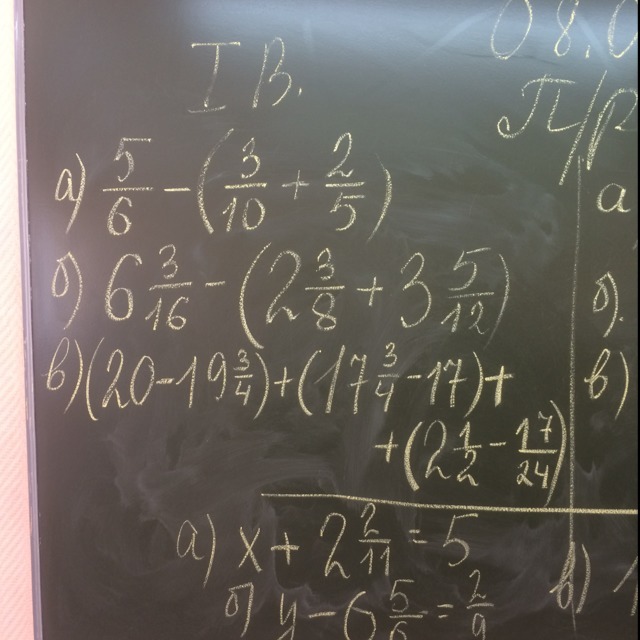 08.0
I В.
П/р
а) 5/6 - (3/10 + 2/5)
а
б) 6 3/16 - (2 3/8 + 3 5/12)
б).
в) (20 - 19 3/4) + (17 3/4 - 17) +
в)
+ (2 1/2 - 17/24)
а) x + 2 2/11 = 5
б) y - 6 5/6 = 2/9
в)